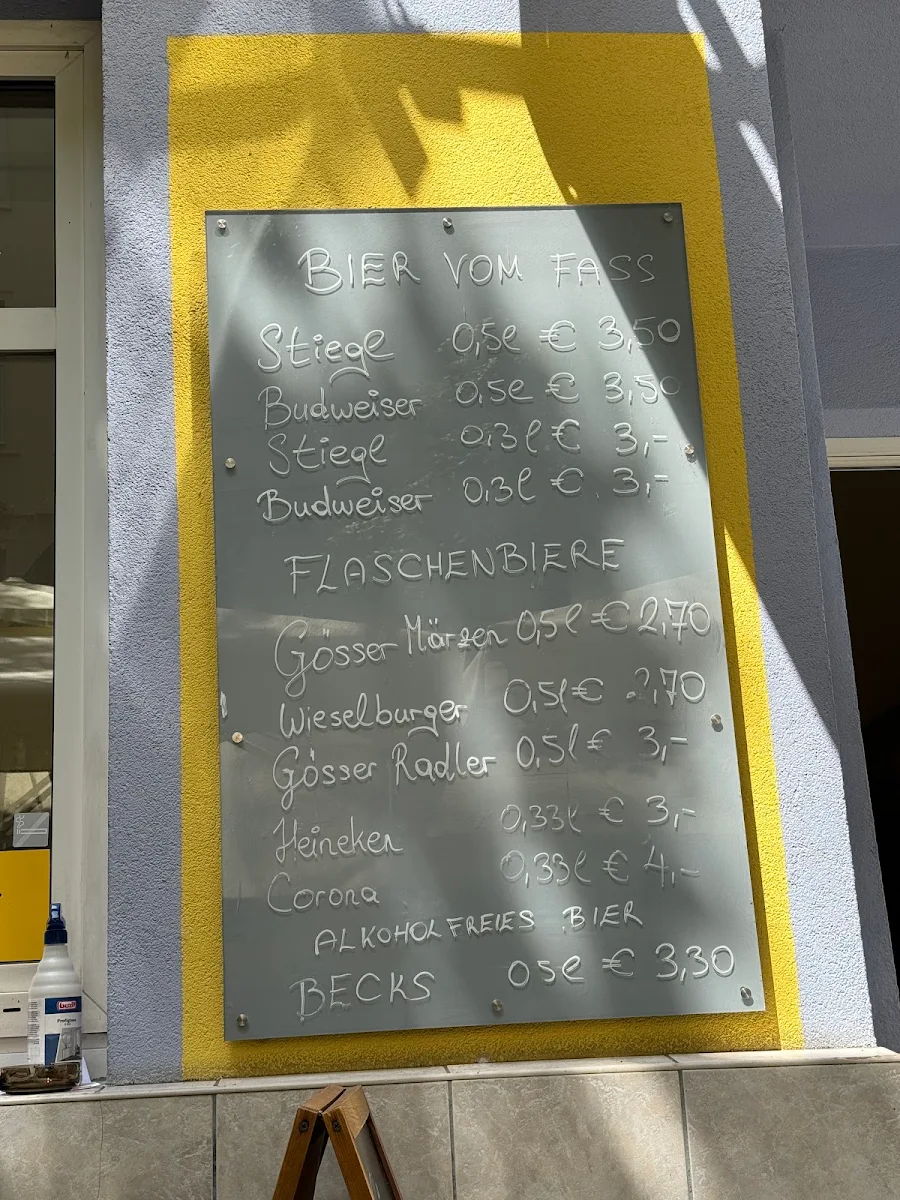 BIER VOM FASS
Stiegl 0,5l € 3,50
Budweiser 0,5l € 3,50
Stiegl 0,3l € 3,-
Budweiser 0,3l € 3,-
FLASCHENBIERE
Gösser Märzen 0,5l € 2,70
Wieselburger 0,5l € 2,70
Gösser Radler 0,5l € 3,-
Heineken 0,33l € 3,-
Corona 0,33l € 4,-
ALKOHOLFREIES BIER
BECKS 05l € 3,30